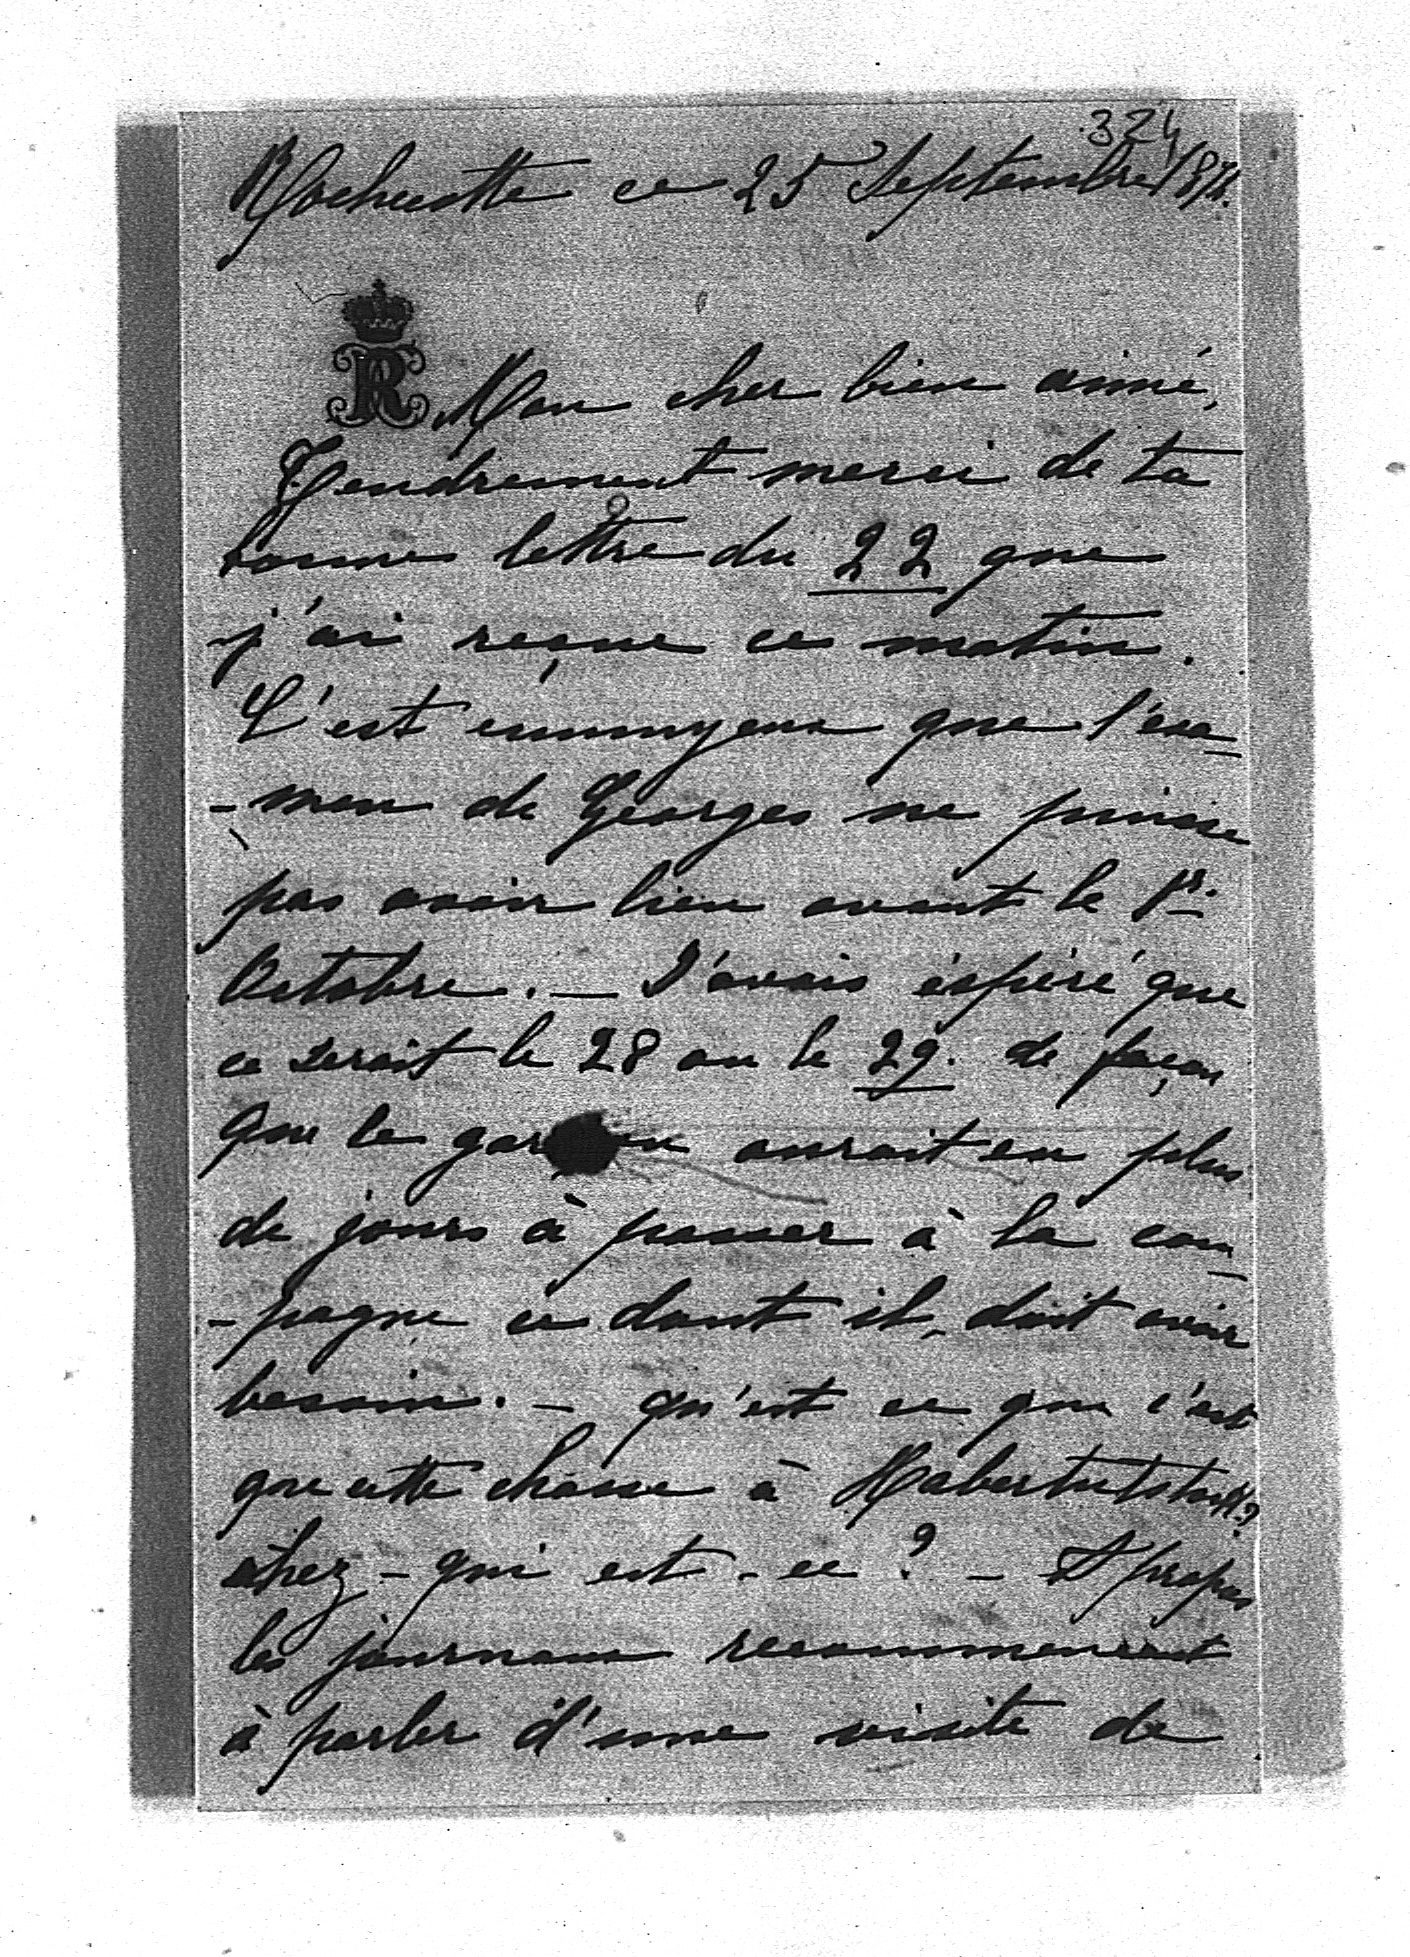 324
Rochecotte ce 25 Septembre
R Mon cher bien aimé,
Tendrement merci de ta
bonne lettre du 22 que
j'ai reçue ce matin.
C'est ennuyeux que l'exa-
-men de Georges ne puisse
pas avoir lieu avant le 1r.
Octobre. — J'avais espéré que
ce serait le 28 ou le 29. de façon
que le garçon aurait eu plus
de jours à passer à la cam-
-pagne ce dont il doit avoir
besoin. — qu'est ce que c'est
que cette chasse à
chez-qui est-ce? — A propos
les journaux recommencent
à parler d'une visite de